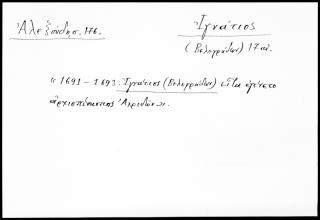 Ἀλεξούδης. 176.
Ἰγνάτιος
(Βελεγράδων) 17 αἰ.
"1691 - 1693. Ἰγνάτιος (Βελεγράδων) εἶτα ἐγένετο
ἀρχιεπίσκοπος Ἀχριδῶν".